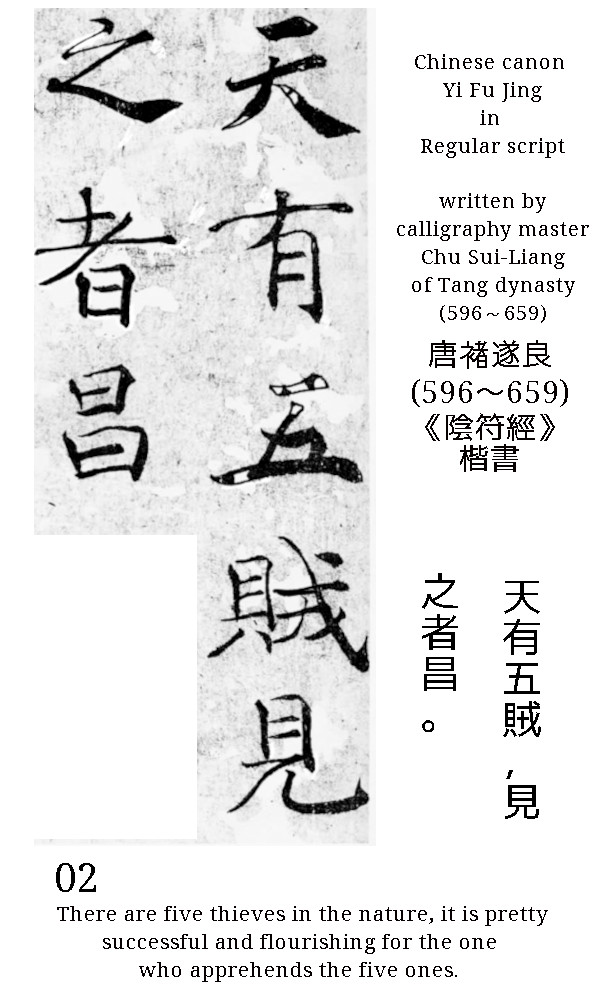 天有五賊見
之者昌
Chinese canon
Yi Fu Jing
in
Regular script
written by
calligraphy master
Chu Sui-Liang
of Tang dynasty
(596~659)
唐褚遂良
(596～659)
《陰符經》
楷書
天有五賊，見
之者昌。
02
There are five thieves in the nature, it is pretty
successful and flourishing for the one
who apprehends the five ones.